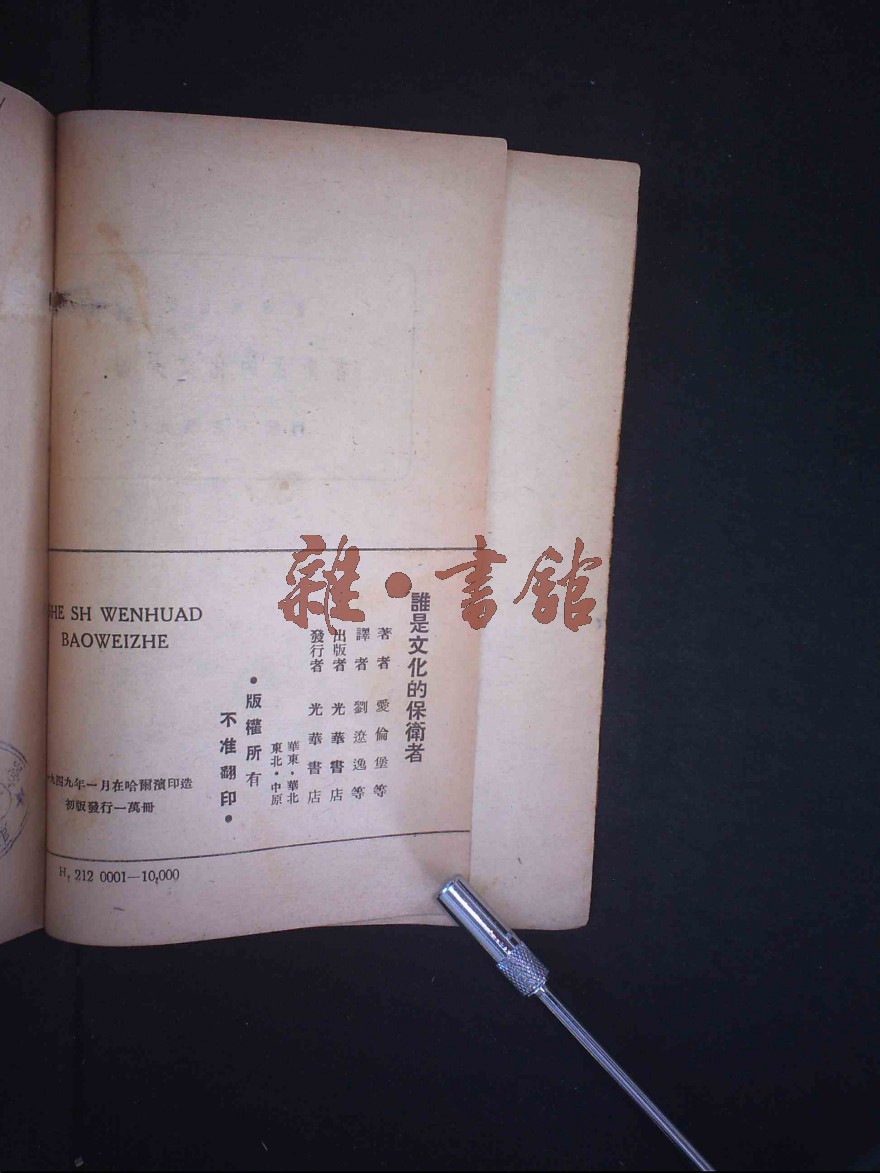 雜·書館
誰是文化的保衛者
著者 愛倫堡等
譯者 劉遼逸等
出版者 光華書店
發行者 光華書店
華東·華北
東北·中原
·版權所有
不准翻印·
HE SH WENHUAD
BAOWEIZHE
一九四九年一月在哈爾濱印造
初版發行一萬冊
H, 212 0001—10,000